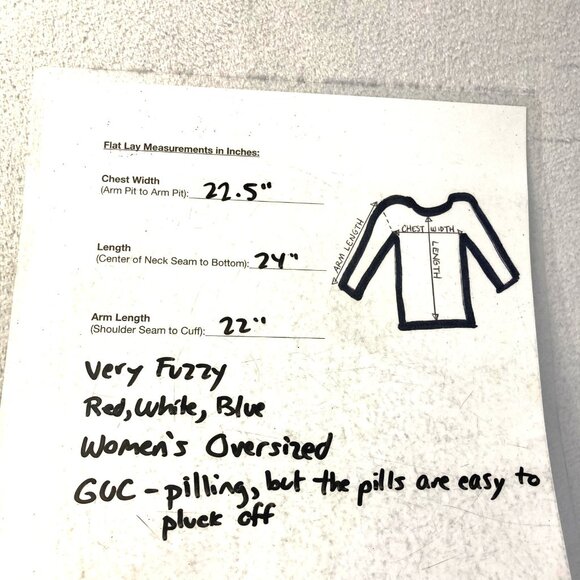 Flat Lay Measurements in Inches:
Chest Width
(Arm Pit to Arm Pit): 22.5"
Length
(Center of Neck Seam to Bottom): 24"
Arm Length
(Shoulder Seam to Cuff): 22"
ARM LENGTH
CHEST WIDTH
LENGTH
Very Fuzzy
Red, White, Blue
Women's Oversized
GUC - pilling, but the pills are easy to
pluck off